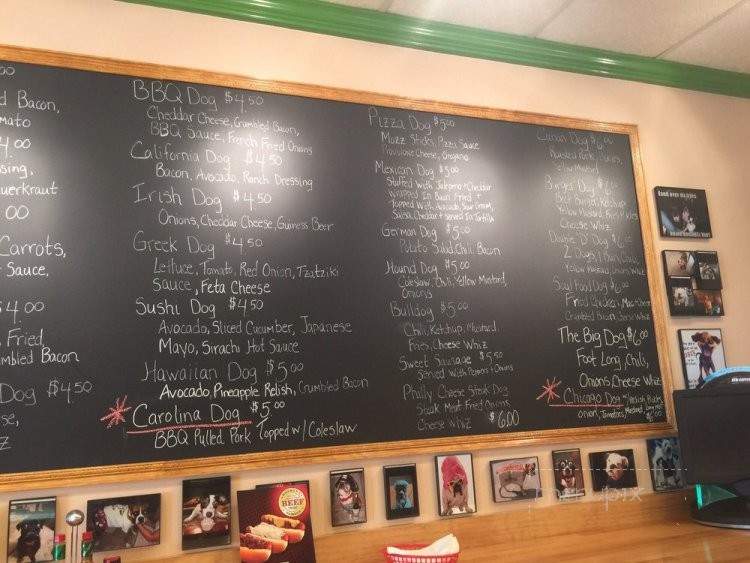 Bacon,
4.00
Carrots,
Sauce,
4.00
Fried
Bacon
Dog $4.50
BBQ Dog $4.50
Cheddar Cheese, Crumbled Bacon,
BBQ Sauce, French Fried Onions
California Dog $4.50
Bacon, Avocado, Ranch Dressing
Irish Dog $4.50
Onions, Cheddar Cheese, Guiness Beer
Greek Dog $4.50
Lettuce, Tomato, Red Onion, Tzatziki
Sauce, Feta Cheese
Sushi Dog $4.50
Avocado, Sliced Cucumber, Japanese
Mayo, Sirachi Hot Sauce
Hawaiian Dog $5.00
Avocado, Pineapple Relish, Crumbled Bacon
Carolina Dog $5.00
BBQ Pulled Pork Topped w/ Coleslaw
Pizza Dog $5.00
Mozz Sticks, Pizza Sauce
Provolone Cheese, Oregano
Mexican Dog $5.00
Stuffed With Jalapeno + Cheddar
Wrapped In Bacon Fried +
Topped With Avocado, Sour Cream,
Salsa, Cheddar + Served In Tortilla
German Dog $5.00
Potato Salad, Chili, Bacon
Hound Dog $5.00
Coleslaw, Chili, Yellow Mustard,
Onions
Bulldog $5.00
Chili, Ketchup, Mustard
Fries, Cheese Whiz
Sweet Sausage $5.50
Served With Peppers + Onions
Philly Cheese Steak Dog
Steak Meat Fried Onions
Cheese Whiz $6.00
Cuban Dog $6
Roasted Pork, Pickles,
Yellow Mustard
Burger Dog $6
Beef Burger, Ketchup
Yellow Mustard, Fries, Pickles
Cheese Whiz
Double D Dog $6
2 Dogs, 1 Bun, Chili,
Yellow Mustard, Onions, Whiz
Soul Food Dog $6
Fried Chicken, Mac + Cheese
Crumbled Bacon, Cheese Whiz
The Big Dog $6.00
Foot Long, Chili,
Onions, Cheese Whiz
Chicago Dog
Onion, Tomatoes, Mustard
BEEF